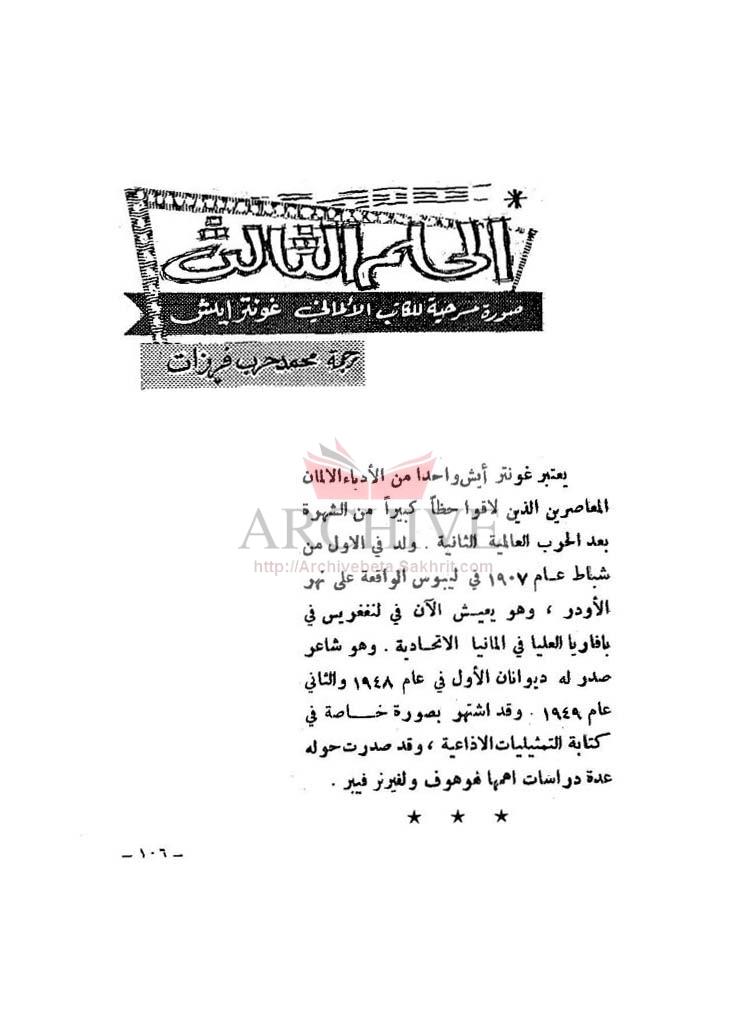 الحلم الثالث
صورة مسرحية للكاتب الألماني غونتر ايش
ترجمة محمد حرب فرزات
يعتبر غونتر أيش واحدا من الأدباء الالمان
المعاصرين الذين لاقوا حظاً كبيراً من الشهرة
بعد الحرب العالمية الثانية . ولد في الاول من
شباط عـام ١٩٠٧ في ليبوس الواقعة على نهر
الأودر ، وهو يعيـش الآن في لنغغريس في
بافاريا العليا في المانيا الاتحـادية . وهو شاعر
صدر له ديوانان الأول في عام ١٩٤٨ والثاني
عام ١٩٤٩ . وقد اشتهر بصورة خـــاصة في
كتابة التمثيليات الاذاعية ، وقد صدرت حوله
عدة دراسات اهمها لهوهوف ولفيرنز فيبر .
★ ★ ★
– ١٠٦ –
ARCHIVE
http://Archivebeta.Sakhrit.com